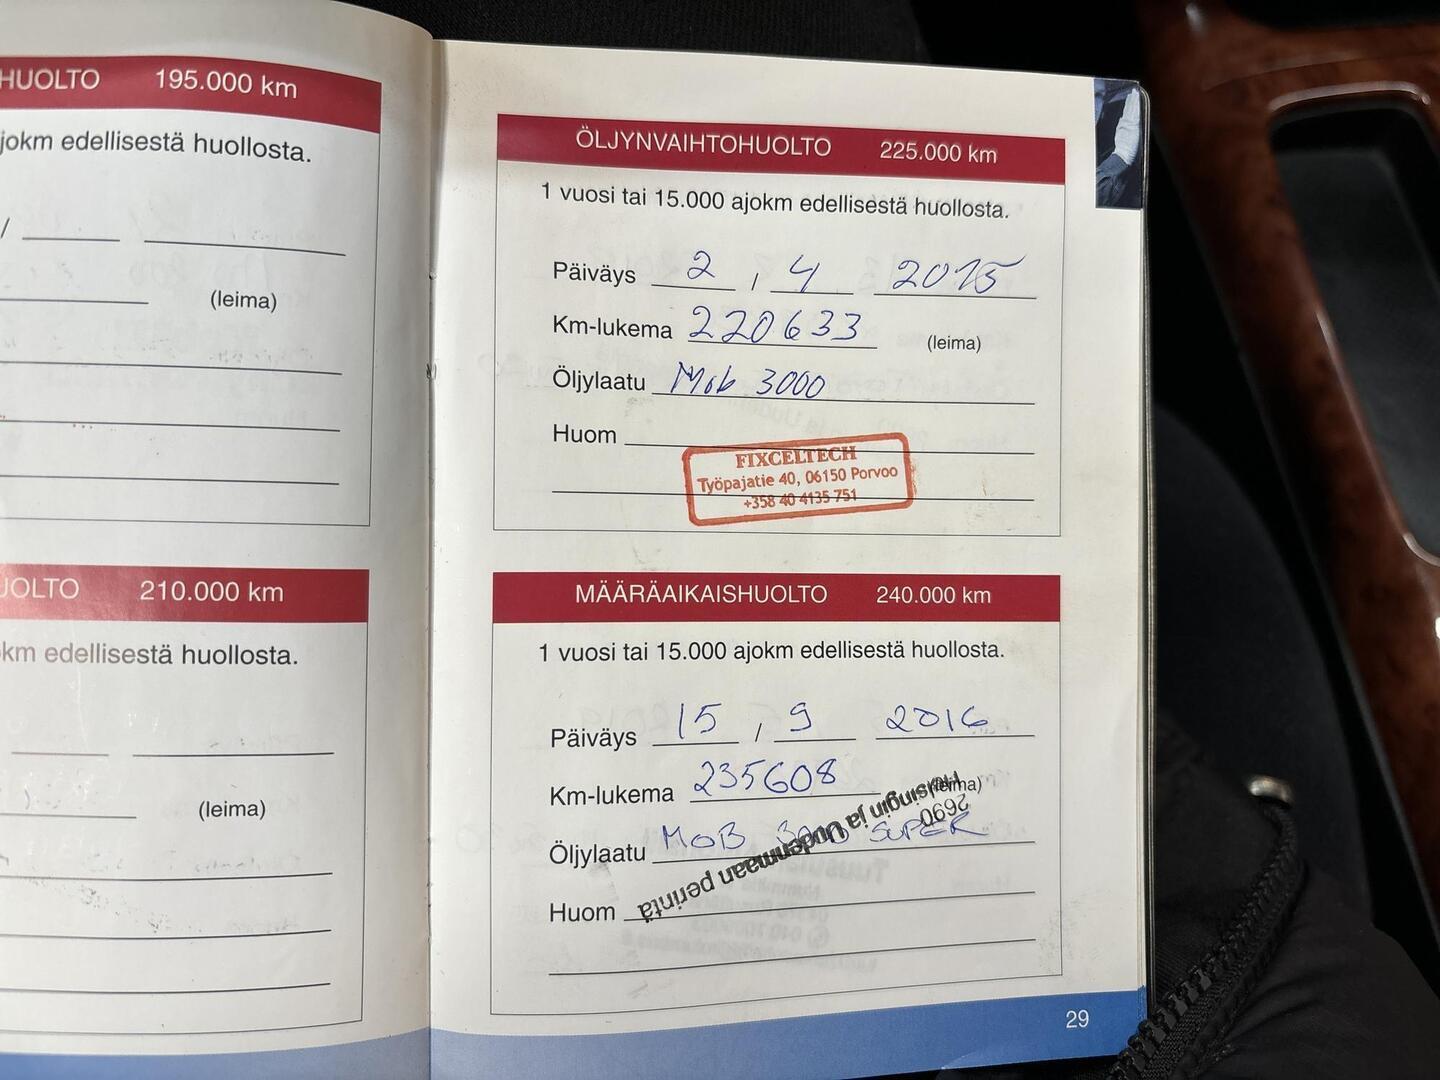 HUOLTO 195.000 km
jokm edellisestä huollosta.
/
(leima)
UOLTO 210.000 km
okm edellisestä huollosta.
(leima)
ÖLJYNVAIHTOHUOLTO 225.000 km
1 vuosi tai 15.000 ajokm edellisestä huollosta.
Päiväys 2 / 4 2015
Km-lukema 220633 (leima)
Öljylaatu Mob 3000
Huom
FIXCELTECH
Työpajatie 40, 06150 Porvoo
+358 40 4135 751
MÄÄRÄAIKAISHUOLTO 240.000 km
1 vuosi tai 15.000 ajokm edellisestä huollosta.
Päiväys 15 / 9 2016
Km-lukema 235608 (leima)
Öljylaatu MOB SUPER
Huom
2690
Helsingin ja Uudenmaan perintä
29